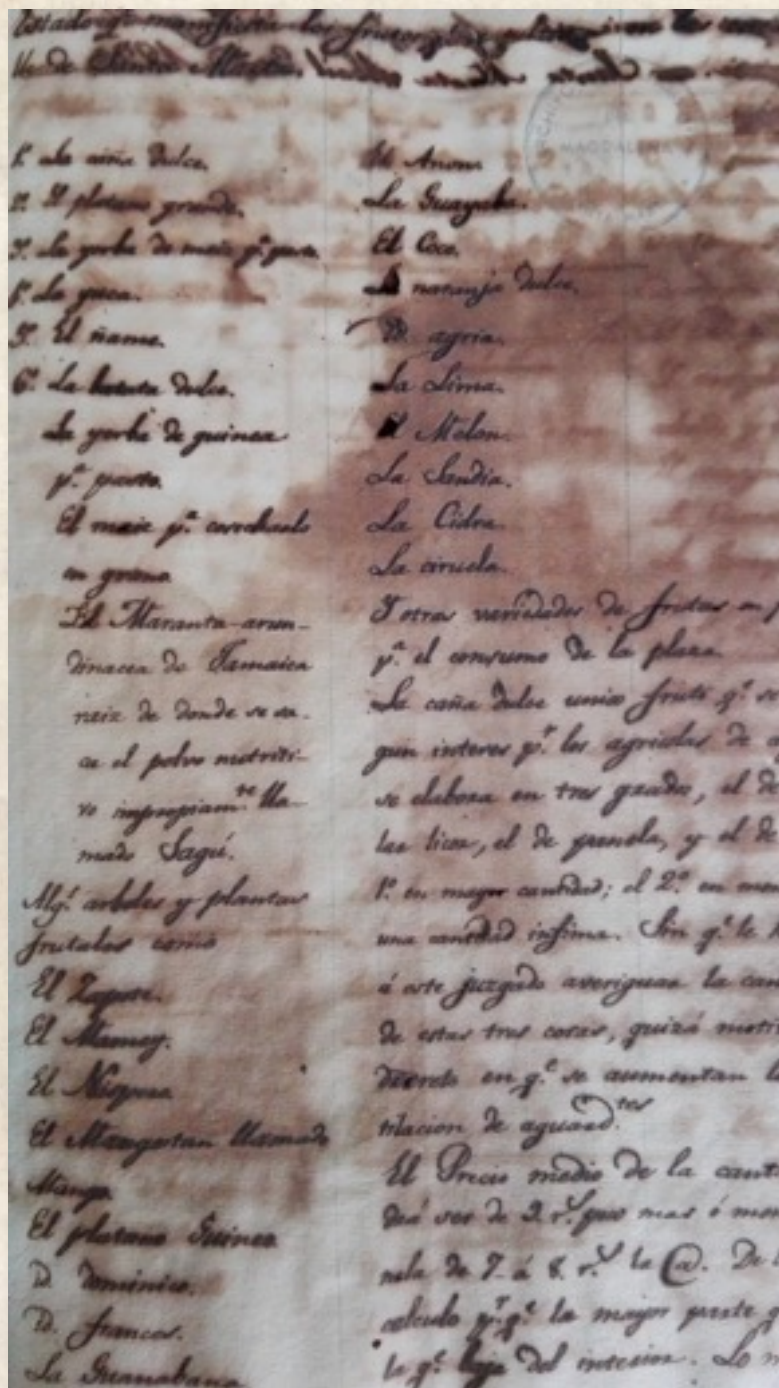 Estado q. manifiesta los frutos q. se
de Santa Marta.
1º La caña dulce.
2º El platano grande.
3º La yerba de maiz pª pasto.
4º La yuca.
5º El ñame.
6º La batata dulce.
La yerba de guinea
pª pasto.
El maiz pª cosecharlo
en grano.
El Maranta-arun-
dinacea de Jamaica
raiz de donde se sa-
ca el polvo nutriti-
vo impropiamte lla-
mado Sagú.
Algs arboles y plantas
frutales como
El Zapote.
El Mamey.
El Níspero
El Mangostan llamado
Mango
El platano Guineo
D. dominico.
D. francos.
La Guanabana
El Anon
La Guayaba.
El Coco.
La naranja dulce.
D. agria.
La Lima.
El Melon.
La Sandia.
La Cidra
La ciruela.
Y otras variedades de frutas en p
pª el consumo de la plaza.
La caña dulce unico fruto qe se
gun interes pª los agricolas de
se elabora en tres grados, el de
lar licor, el de panela, y el de
1º en mayor cantidad; el 2º en men
una cantidad infima. Sin qe le
á este juzgado averiguar la can
de estas tres cosas, quizá
decreto en qe se aumentan
tilacion de aguardtes
El Precio medio de la
drá ser de 2 rs poco mas ó men
nela de 7 á 8 rs la @. De
calculo pr qe la mayor parte
la qe baja del interior. Lo
MAGDALENA